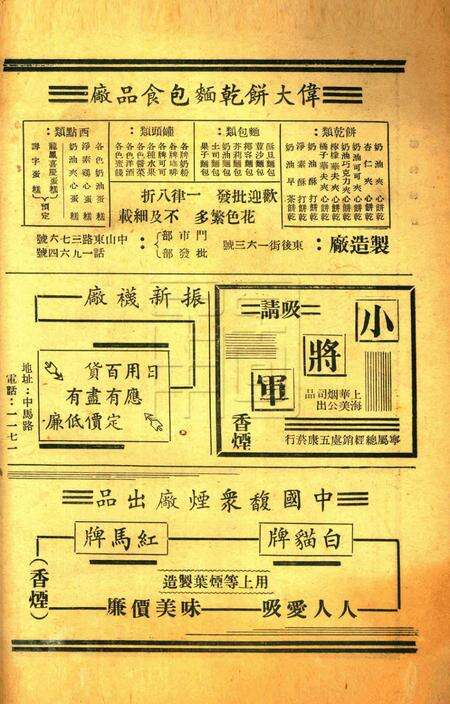 偉大餅乾麵包食品廠
餅乾類：
杏仁夾心餅乾
奶油夾心餅乾
奶油可可夾心餅乾
奶油巧克力夾心餅乾
檸檬華夫夾心餅乾
橘子華夫夾心餅乾
奶油酥打餅乾
淨素酥打餅乾
奶油早茶餅乾
麵包類：
豆沙麵包
椰容麵包
茶莉麵包
奶油麵包
土司麵包
果子麵包
罐頭類：
各牌奶粉
各牌咖啡
各牌可可
各種水果
各色罐菜
各色洋酒
各色汽水
西點類：
各色奶油蛋糕
淨素夾心蛋糕
奶油夾心蛋糕
龍鳳喜慶蛋糕
壽字蛋糕
預定
歡迎批發 一律八折
花色繁多 不及細載
製造廠：東後街一六三號
門市部：中山東路三七六號
批發部：話一九六四號
請吸
小將軍
香煙
上海華美烟公司出品
寧屬總經銷處五康菸行
振新襪廠
日用百貨
應有盡有
定價低廉
地址：中馬路
電話：一一七一
中國馥衆煙廠出品
白貓牌
紅馬牌
（香煙）
用上等煙葉製造
人人愛吸—味美價廉